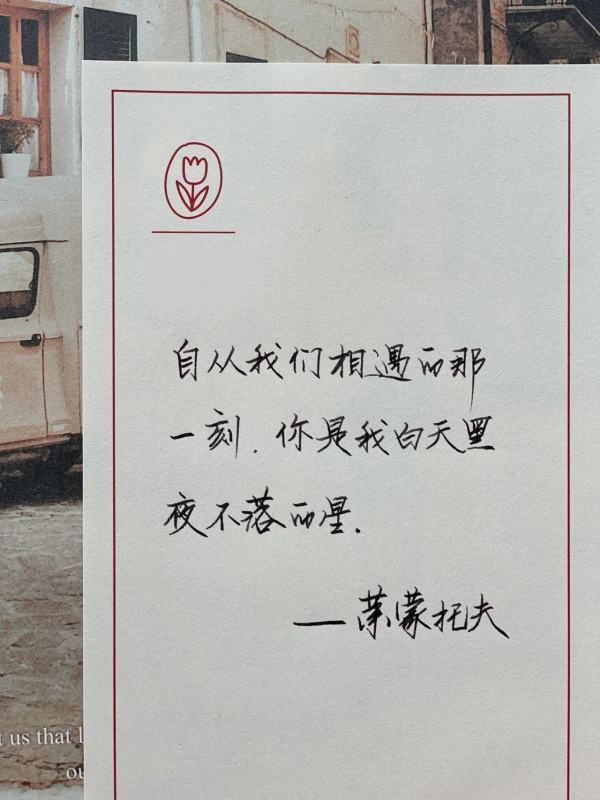 自从我们相遇的那
一刻.你是我白天黑
夜不落的星.
——莱蒙托夫
t us that l
ou